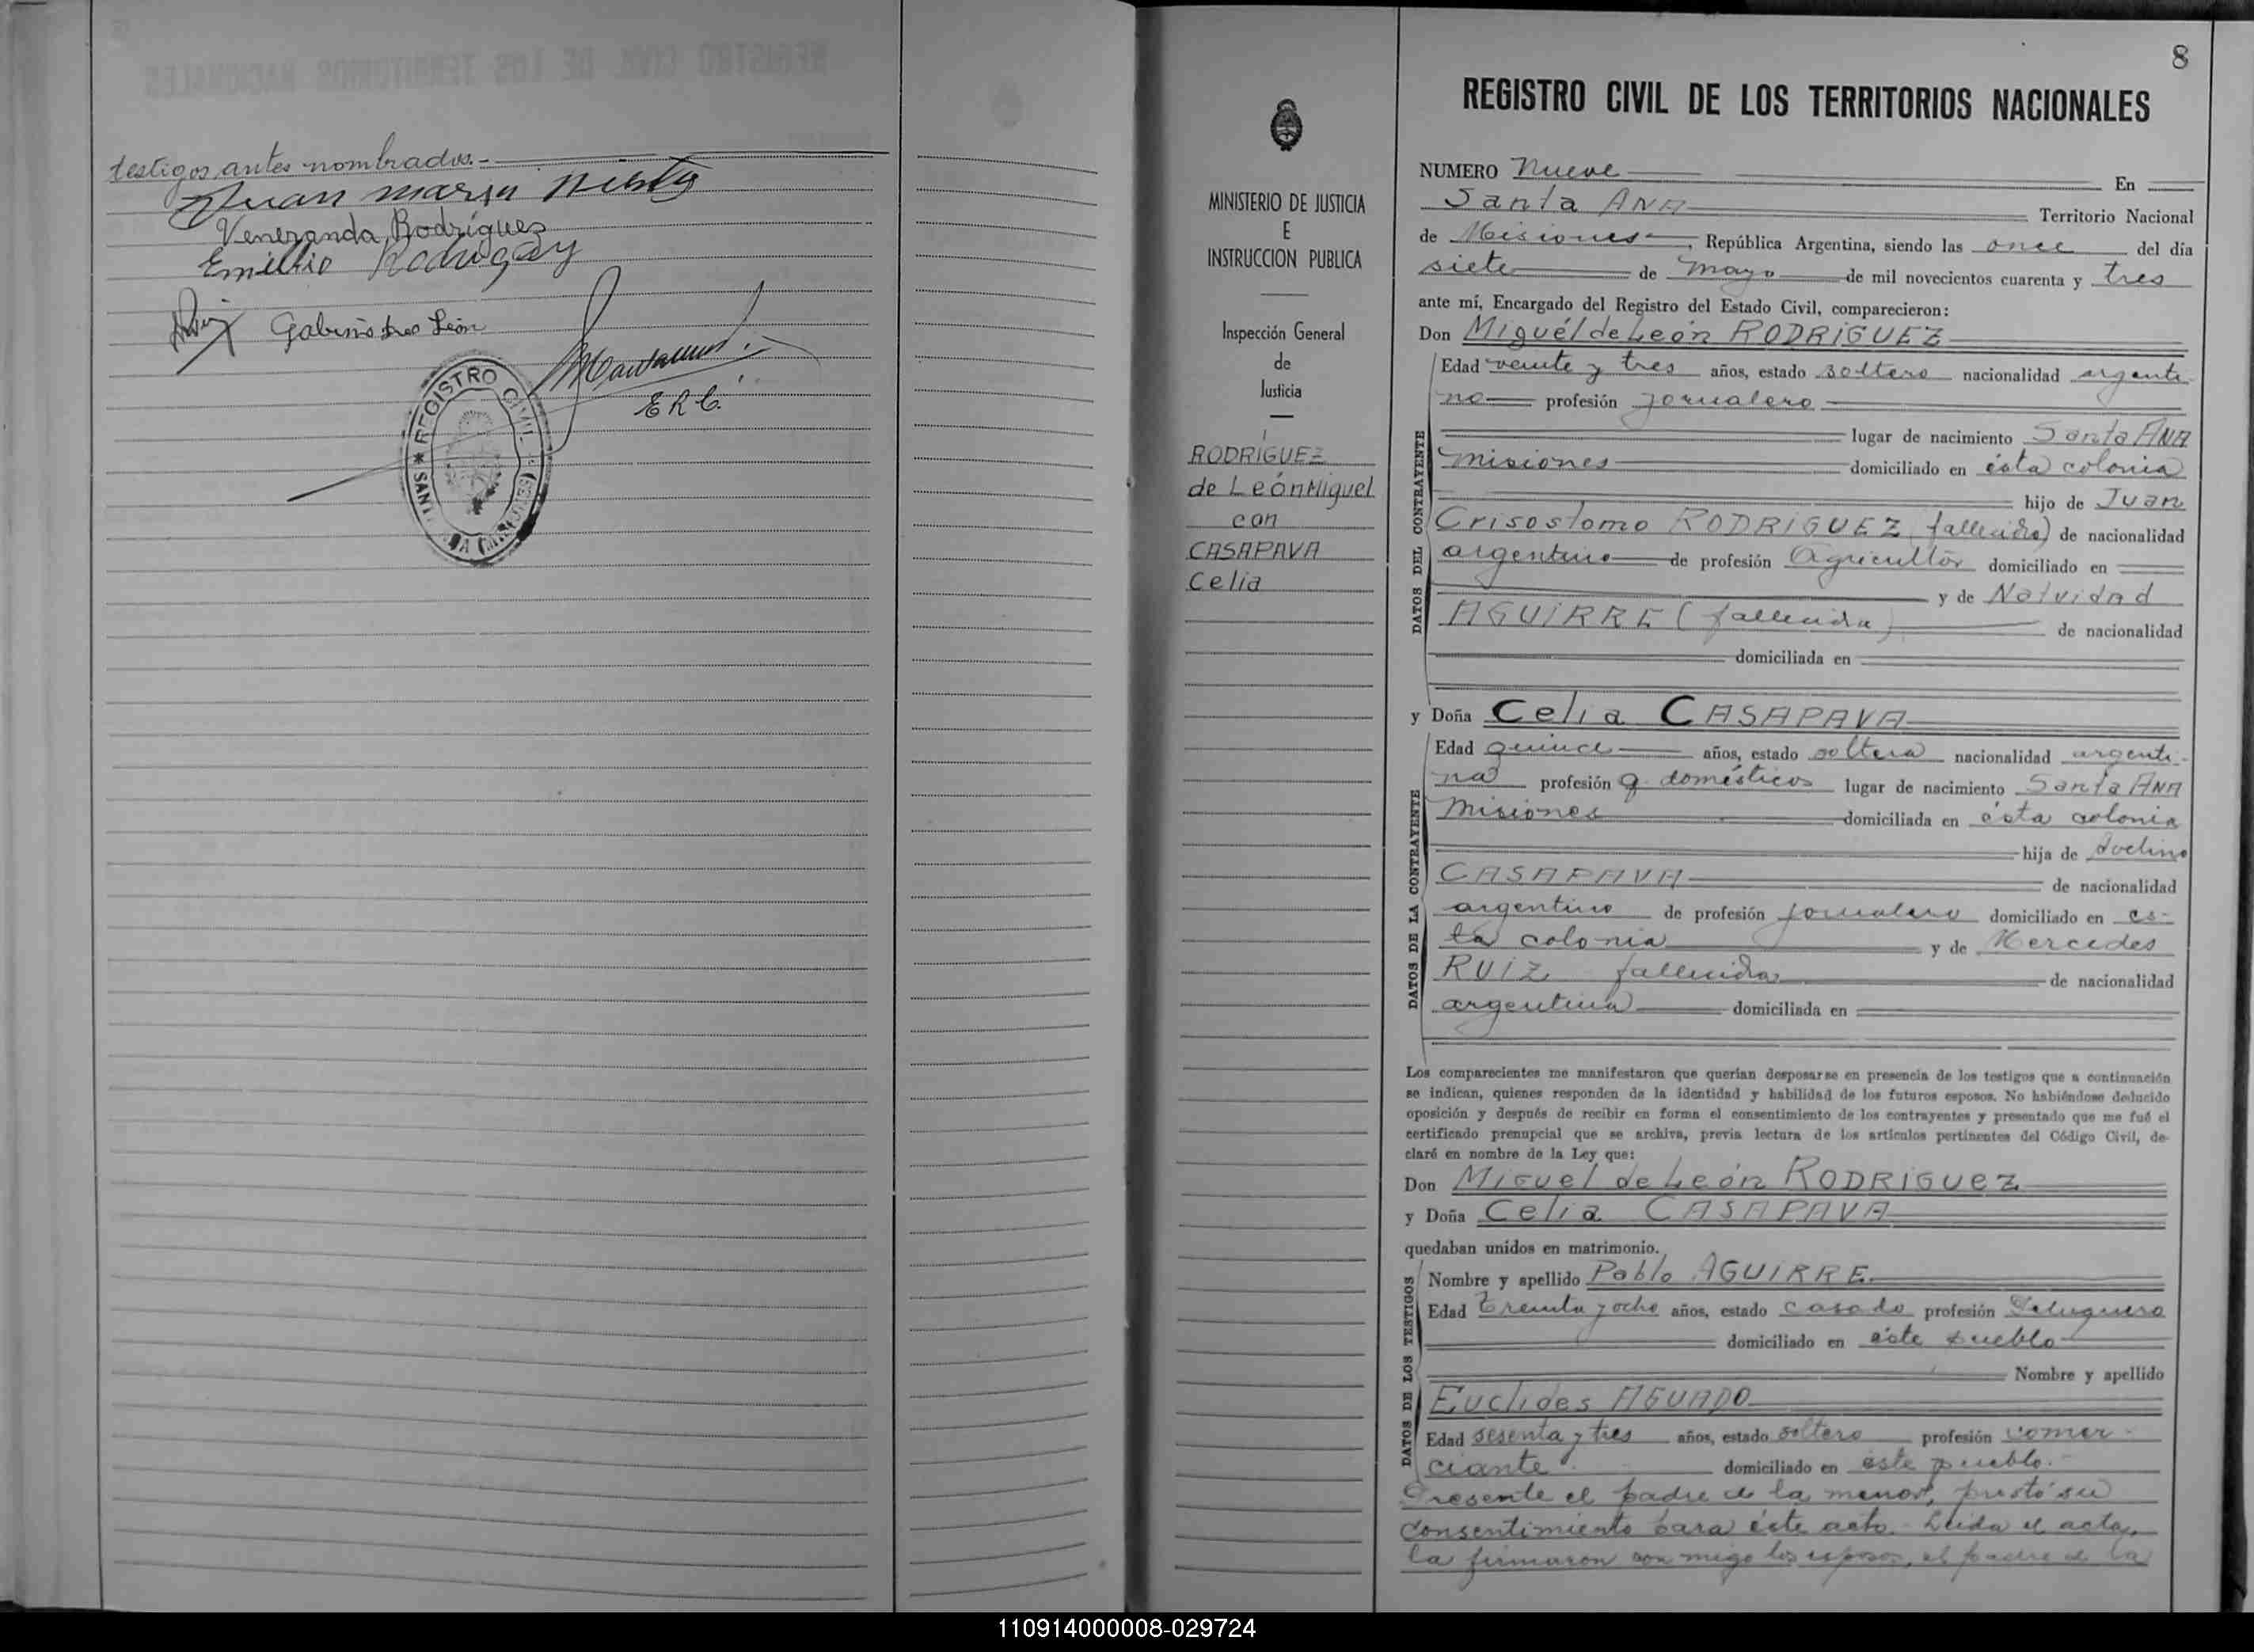 testigos antes nombrados.-
Juan maria
Veneranda Rodriguez
Emilio
Gabino
E R C.
REGISTRO CIVIL
SANTA ANA (MISIONES)
8
REGISTRO CIVIL DE LOS TERRITORIOS NACIONALES
MINISTERIO DE JUSTICIA
E
INSTRUCCION PUBLICA
Inspección General
de
Justicia
RODRIGUEZ
de León Miguel
con
CASAPAVA
Celia
NUMERO Nueve En
Santa ANA Territorio Nacional
de Misiones, República Argentina, siendo las once del día
siete de mayo de mil novecientos cuarenta y tres
ante mí, Encargado del Registro del Estado Civil, comparecieron:
Don Miguél de León RODRIGUEZ
DATOS DEL CONTRAYENTE
Edad veinte y tres años, estado soltero nacionalidad argenti
no profesión jornalero
lugar de nacimiento Santa ANA
Misiones domiciliado en ésta colonia
hijo de Juan
Crisostomo RODRIGUEZ (fallecido) de nacionalidad
argentino de profesión Agricultor domiciliado en
y de Natvidad
AGUIRRE (fallecida) de nacionalidad
domiciliada en
y Doña Celia CASAPAVA
DATOS DE LA CONTRAYENTE
Edad quince años, estado soltera nacionalidad argenti-
na profesión q. domésticos lugar de nacimiento Santa ANA
Misiones domiciliada en ésta colonia
hija de
CASAPAVA de nacionalidad
argentino de profesión jornalero domiciliado en es-
ta colonia y de Mercedes
RUIZ fallecida de nacionalidad
argentina domiciliada en
Los comparecientes me manifestaron que querían desposarse en presencia de los testigos que a continuación
se indican, quienes responden de la identidad y habilidad de los futuros esposos. No habiéndose deducido
oposición y después de recibir en forma el consentimiento de los contrayentes y presentado que me fué el
certificado prenupcial que se archiva, previa lectura de los artículos pertinentes del Código Civil, de-
claré en nombre de la Ley que:
Don Miguel de León RODRIGUEZ
y Doña Celia CASAPAVA
quedaban unidos en matrimonio.
DATOS DE LOS TESTIGOS
Nombre y apellido Pablo AGUIRRE
Edad treinta y ocho años, estado casado profesión Peluquero
domiciliado en éste pueblo
Nombre y apellido
Euclides AGUADO
Edad sesenta y tres años, estado soltero profesión comer-
ciante domiciliado en éste pueblo.-
Presente el padre de la menor, prestó su
consentimiento para éste acto. Leida el acta,
la firmaron con migo los esposos, el padre de la
110914000008-029724